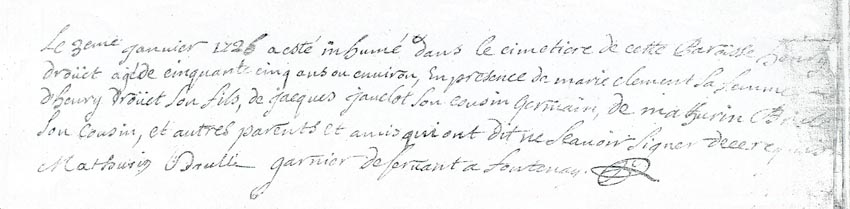 Le 3eme janvier 1726 a esté inhumé dans le cimetiere de cette Paroisse henry
Drouet agé de cinquante cinq ans ou environ, En presence de marie clement sa femme
d'henry Drouet son fils, de jacques jauelot son cousin germain, de mathurin
son cousin, et autres parents et amis qui ont dit ne scauoir signer de ce requis
Mathurin garnier deseruant a fontenay.